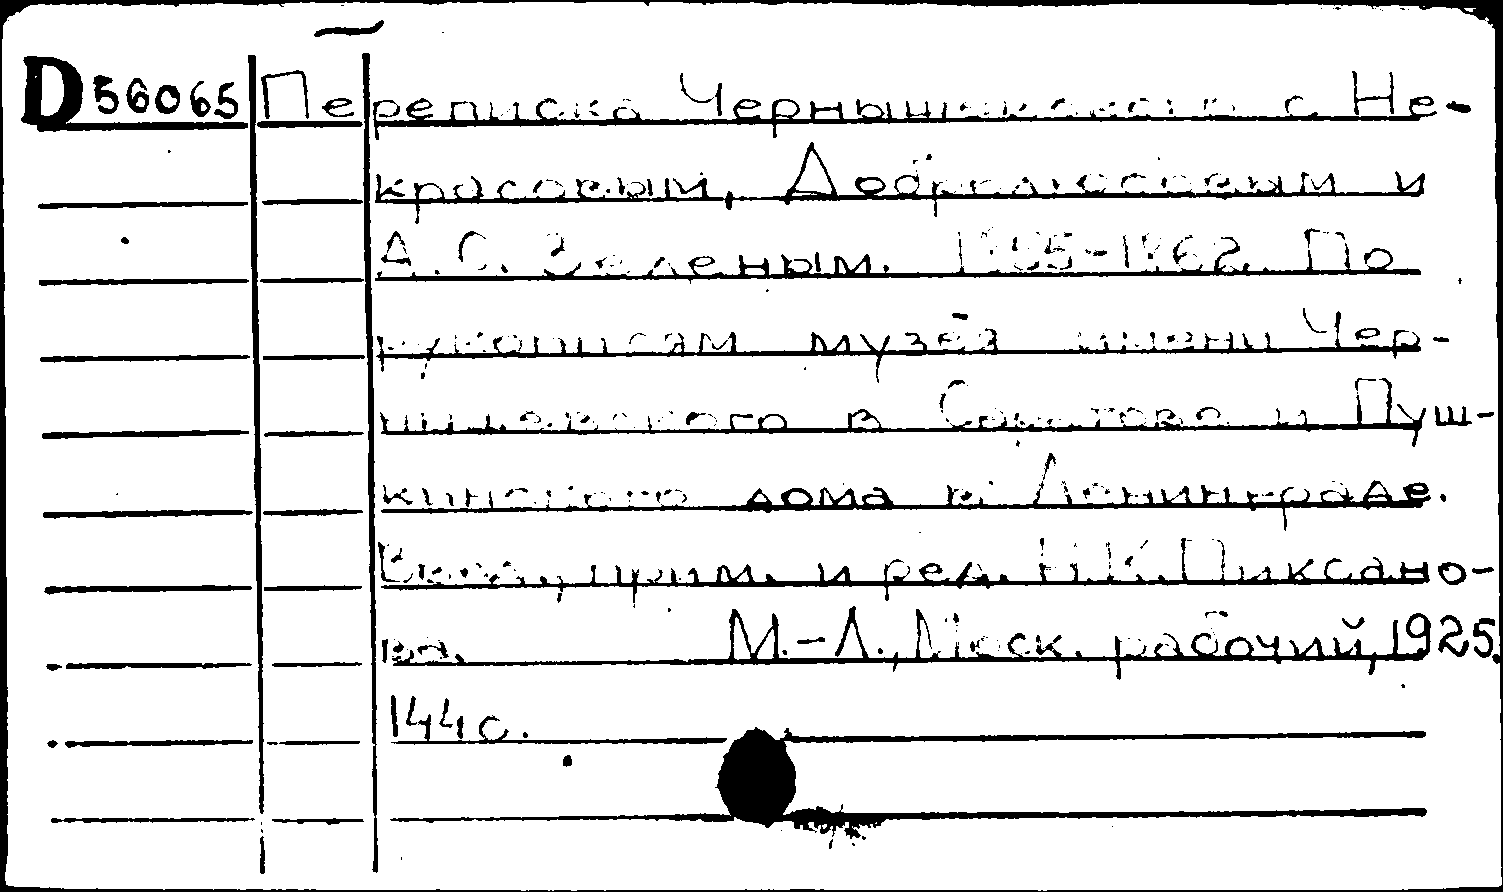 D56065 Переписка Чернышевского с Не-
красовым, Добролюбовым и
А.С. Зеленым. 1855-1862. По
рукописям музея имени Чер-
нышевского в Саратове и Пуш-
кинского дома в Ленинграде.
Введ., прим. и ред. Н.К. Пиксано-
ва. М.-Л., Моск. рабочий, 1925.
144 с.